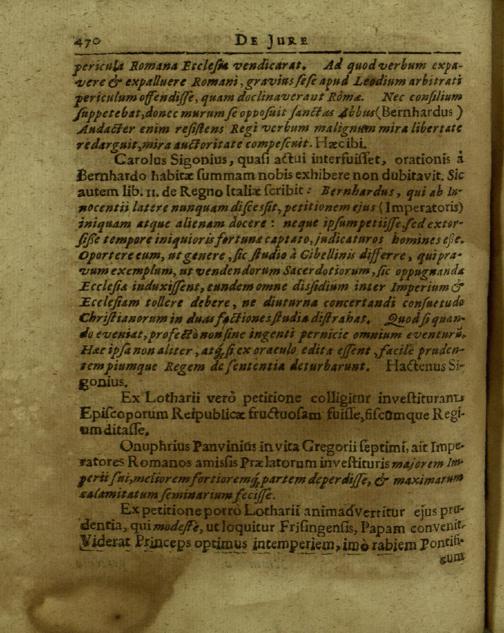 470 DE JURE
pericula Romana Ecclesia vendicarat. Ad quod verbum expa-
vere & expalluere Romani, gravius sese apud Leodium arbitrati
periculum offendisse, quam doclinaverant Romæ. Nec consilium
suppetebat, donec murum se opposuit sanctas Abbus (Bernhardus)
Audacter enim resistens Regi verbum malignum mira libertate
redarguit, mira auctoritate compescuit. Hæc ibi.
Carolus Sigonius, quasi actui interfuisset, orationis à
Bernhardo habitæ summam nobis exhibere non dubitavit. Sic
autem lib. 11. de Regno Italiæ scribit: Bernhardus, qui ab In-
nocentii latere nunquam discessit, petitionem ejus (Imperatoris)
iniquam atque alienam docere: neque ipsum petiisse, sed extor-
sisse tempore iniquioris fortuna captato, judicaturos homines esse.
Oportere eum, ut genere, sic studio à Gibellinis differre, qui pra-
vum exemplum, ut vendendorum Sacerdotiorum, sic oppugnanda
Ecclesia induxissent, eundem omne dissidium inter Imperium &
Ecclesiam tollere debere, ne diuturna concertandi consuetudo
Christianorum in duas factiones studia distrahat. Quod si quan-
do eveniat, profectò non sine ingenti pernicie omnium eventurū.
Hæc ipsa non aliter, atq; si ex oraculo edita essent, facile pruden-
tem piumque Regem de sententia deturbarunt. Hactenus Si-
gonius.
Ex Lotharii verò petitione colligitur investituram
Episcoporum Reipublicæ fructuosam fuisse, fiscumque Regi-
um ditasse.
Onuphrius Panvinius in vita Gregorii septimi, ait Impe-
ratores Romanos amissis Prælatorum investituris majorem Im-
perii sui, meliorem fortioremq; partem deperdisse, & maximarum
calamitatum seminarium fecisse.
Ex petitione porrò Lotharii animadvertitur ejus pru-
dentia, qui modestè, ut loquitur Frisingensis, Papam convenit.
Viderat Princeps optimus intemperiem, imò rabiem Pontifi-
cum